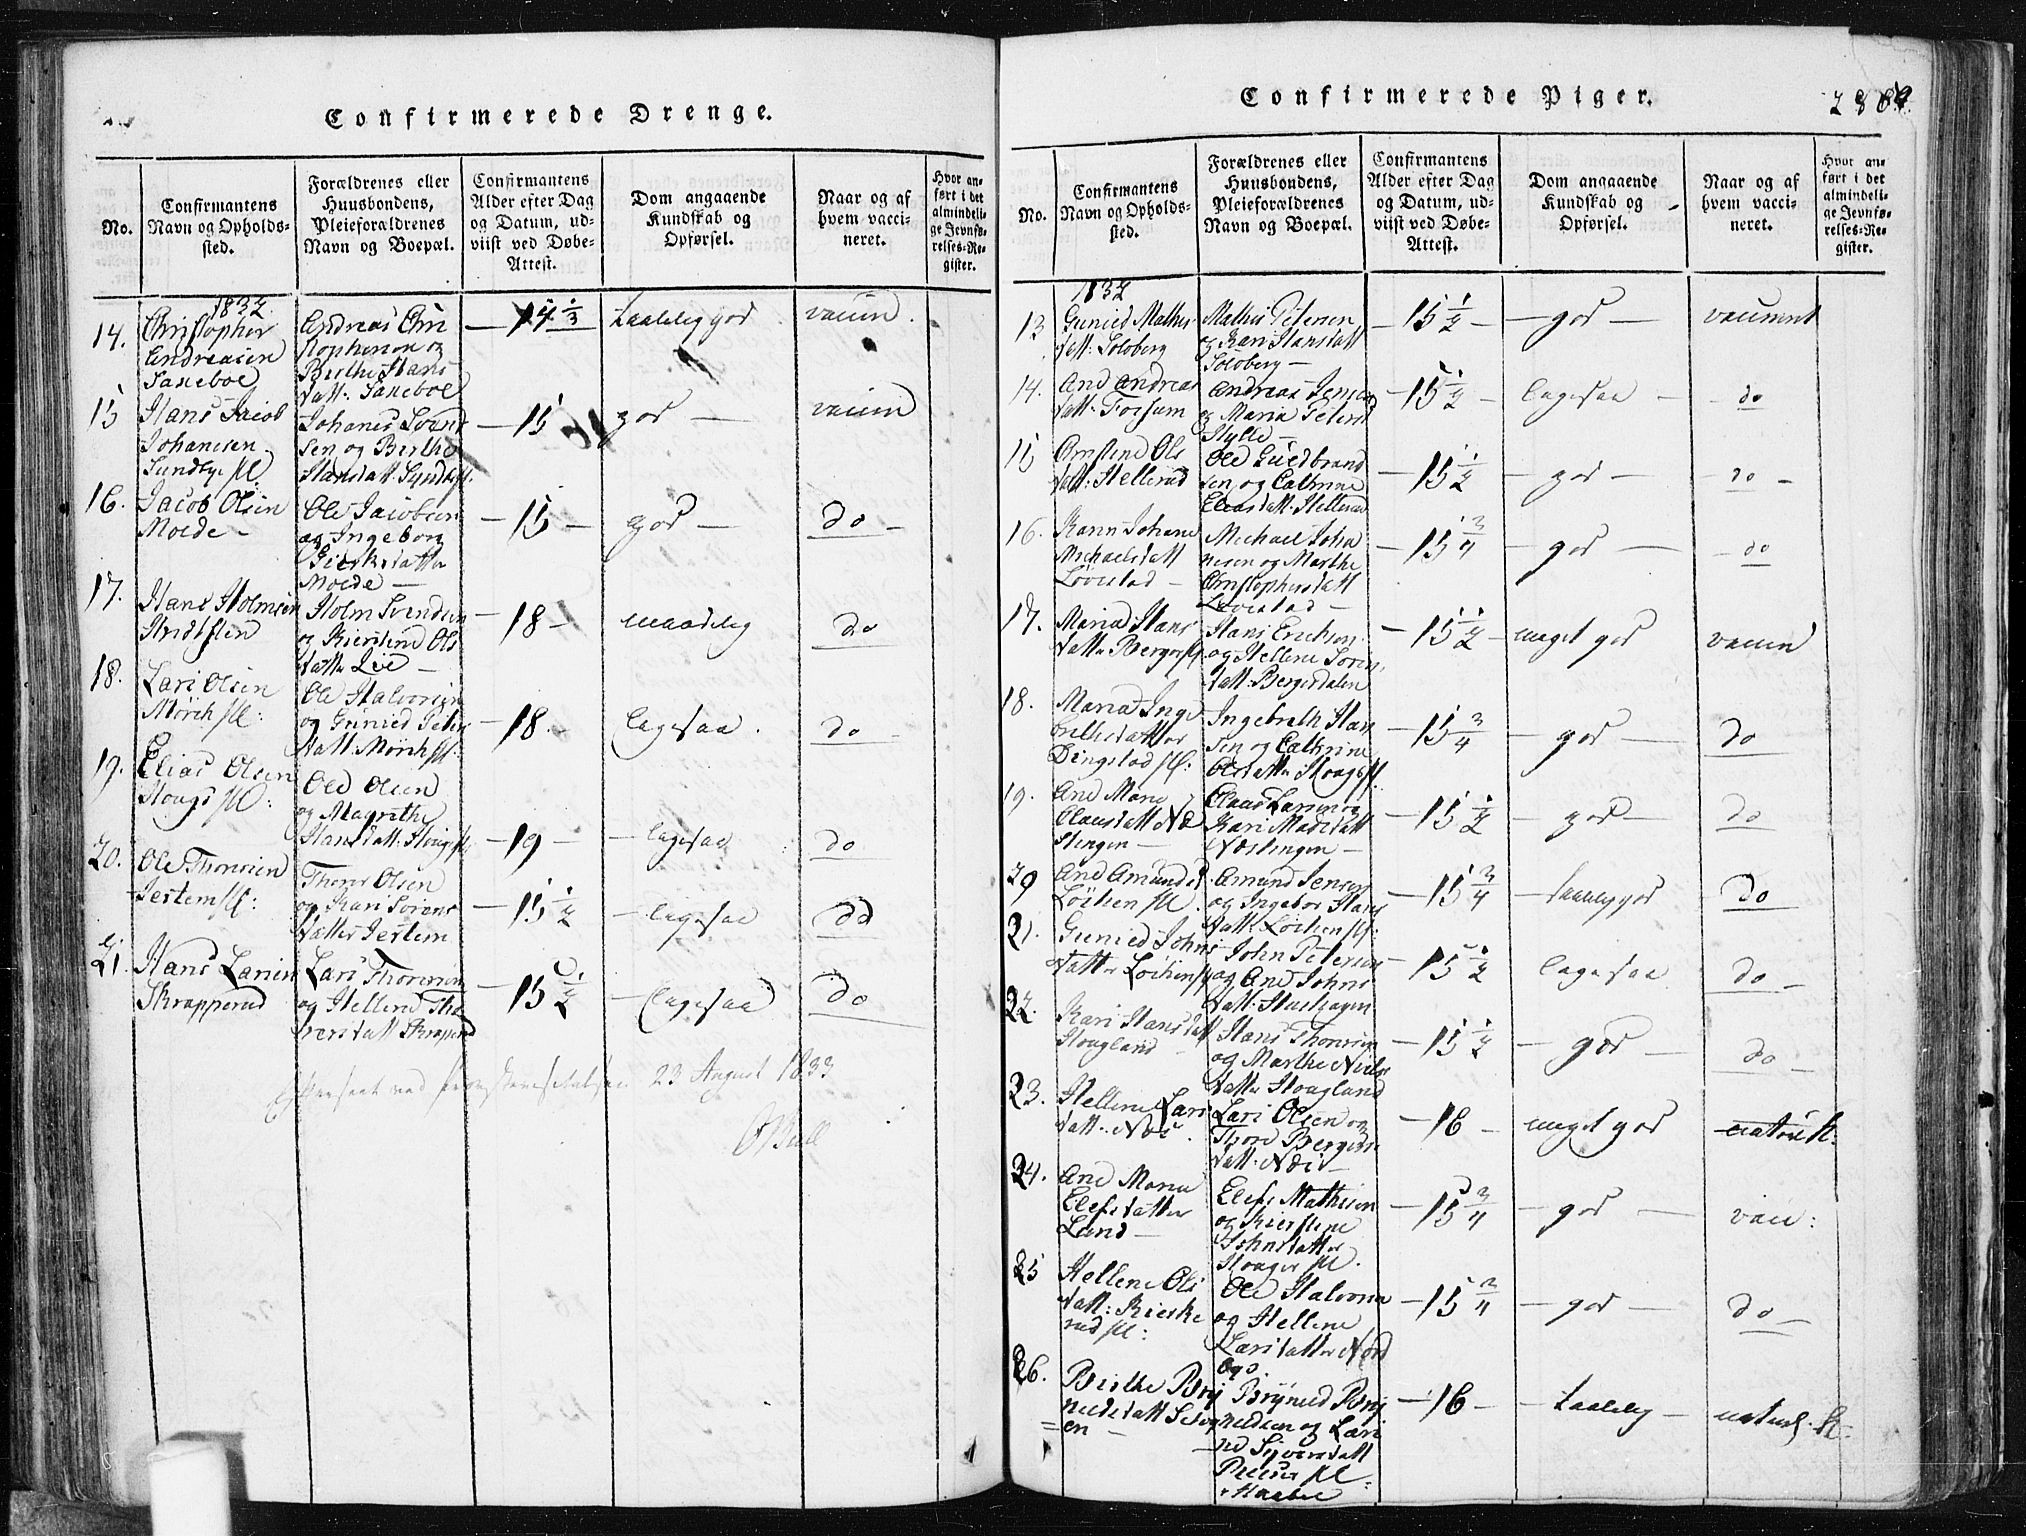 Confirmerede Drenge.
No.
Confirmantens
Navn og Opholds-
sted.
Forældrenes eller
Huusbondens,
Pleieforældrenes
Navn og Boepæl.
Confirmantens
Alder efter Dag
og Datum, ud-
viist ved Døbe-
Attest.
Dom angaaende
Kundskab og
Opførsel.
Naar og af
hvem vacci-
neret.
Hvor an-
ført i det
almindeli-
ge Jevnfø-
relses-Re-
gister.
1832
14.
Christopher
Andreasen
Andreas Chri
stophersen og
Birthe Hans
datt.
14 1/3
taalelig god
vaccin.
15
Hans Jacob
Johanesen
Sundbye pl.
Johanes Svend
sen og Birthe
Hansdatt. Sundby pl.
15
god
vaccin
16.
Jacob Olsen
Moede
Ole Jacobsen
og Ingebor
datter
Moede
15
god
do
17.
Hans Holmsen
Holm Svendsen
og Kierstine Ols
datter Lie
18
maadelig
do
18.
Lars Olsen
Mørch pl:
Ole Halvorsen
og Gunild Peders
datt. Mørch pl:
18
ligesaa
do
19.
Elias Olsen
Hougs pl:
Ole Olsen
og Magrethe
Hansdatt. Houg pl
19
ligesaa
do
20.
Ole Thoresen
Jestem pl:
Thorer Olsen
og Kari Sørens
datter Jestem
15 1/2
ligesaa
do
21.
Hans Larsen
Skrapperud
Lars Thoresen
og Hellene Tho
rersdatt Skrapperud
15 1/2
ligesaa
do
23 August 1833
Bull
Confirmerede Piger.
No.
Confirmantens
Navn og Opholds-
sted.
Forældrenes eller
Huusbondens,
Pleieforældrenes
Navn og Boepæl.
Confirmantens
Alder efter Dag
og Datum, ud-
viist ved Døbe-
Attest.
Dom angaaende
Kundskab og
Opførsel.
Naar og af
hvem vacci-
neret.
Hvor an-
ført i det
almindeli-
ge Jevnfø-
relses-Re-
gister.
1832
13
Gunild Mathis
datt: Soloberg
Mathis Petersen
og Kari Hansdatt
Soloberg
15 1/2
god
vaccineret
14.
Ane Andreas
datt. Fossum
Andreas Jensen
og Maria Peters
Hylle
15 1/2
ligesaa
do
15
Christine Ols
datt: Hellerud
Ole Guldbrand
sen og Cathrine
Eliasdatt. Hellerud
15 1/2
god
do
16.
Karen Johane
Michaelsdatt
Løvestad
Michael Joha
nesen og Marthe
Christophersdatt
Løvestad
15 3/4
god
do
17.
Maria Hans
datter Berger pl
Hans Erichsen
og Hellene Soren
datt. Bergerdalen
15 1/2
meget god
vaccin
18.
Maria Inge
brethsdatter
Dingstad pl:
Ingebreth Han
sen og Cathrine
Olsdatter Hougs pl
15 3/4
god
do
19.
Ane Marie
Clausdatt Næ
stingen
Claus Larsen og
Kari Madsdatt
Næstingen
15 1/2
god
do
20
Ane Amundsd
Løchen pl.
Amund Jensen
og Ingebor Hans
datt: Løchen pl:
15 3/4
taalelig god
do
21.
Gunild Johns
datter Løchen pl
John Petersen
og Ane Johns
datt. Hushagen
15 1/2
ligesaa
do
22.
Kari Hansdatt
Hougland
Hans Thoresen
og Marthe Niels
datter Hougland
15 1/2
god
do
23.
Hellene Lars
datt. Næs
Lars Olsen og
Thore Bergers
datt. Næs
16
meget god
naturl.
24.
Ane Maria
Elefsdatter
Lund
Elef Mathisen
og Kierstine
Johnsdatter
Houger pl.
15 3/4
god
vacc:
25
Hellene Ols
datt: Kierke
rud pl:
Ole Halvorsen
og Hellene
Larsdatter Nord
bye
15 3/4
god
do
26.
Birthe Bry
nildsdatt
en
Brynild Bry
nildsen og Lari
ne Syversdatt
16
taalelig
naturl.